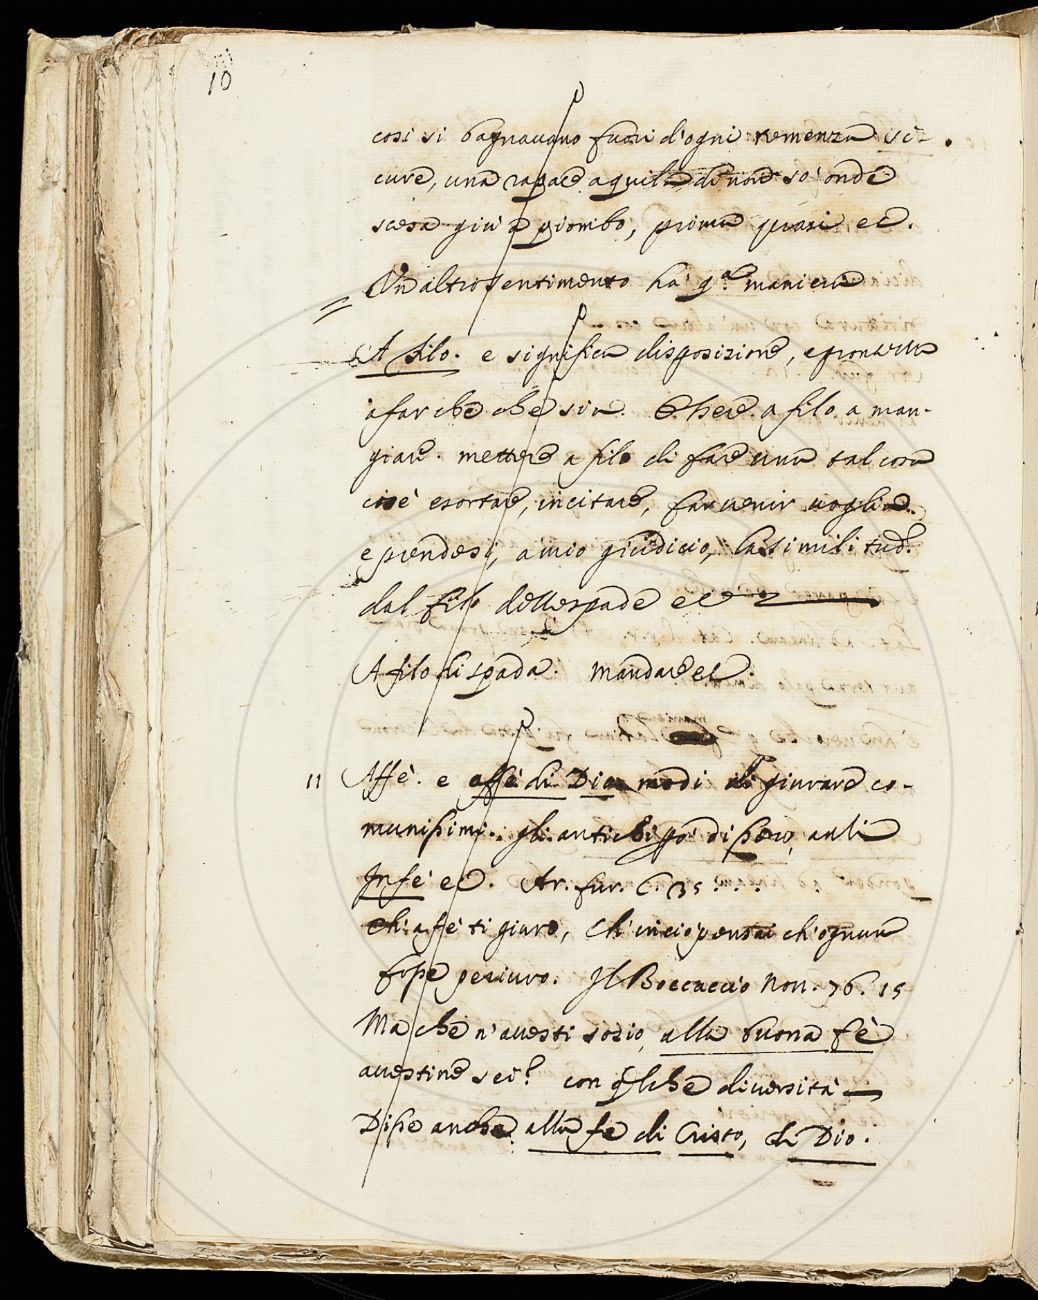 10
così si bagnauano fuori d'ogni temenza si-
cure, una rapace aquila di non so' onde
scesa giù a piombo, prima quasi ec.
Un altro sentimento ha' q.a maniera
A filo. e significa disposizione, e prontezza
a far che che sia. Essere a filo a man-
giare. mettere a filo di fare una tal cosa
cioè esortare, incitare, far uenir uoglia.
e prendesi, a mio giudicio, la similitud.e
dal filo delle spade ec
A filo di spada. Mandare ec.
maniera
11 Affè. e affè di Dio modi di giurare co-
munissimi. gli antichi disseро, anli
In fè ec. Ar. fur. C. 35...
Ch' a fè ti giuro, ch' io pensai ch' ognun
fosse periuro. Il Boccaccio Nou. 76. 15
Ma che n'auesti sozio, alla buona fè
auestine sei? con qlche diuersità
Disse anche alla fe di Cristo, di Dio.